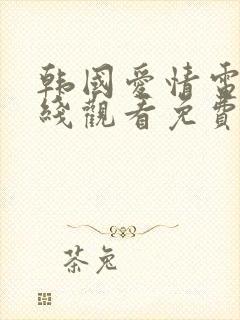 韩國愛情電
綫觀看免費
茶兔